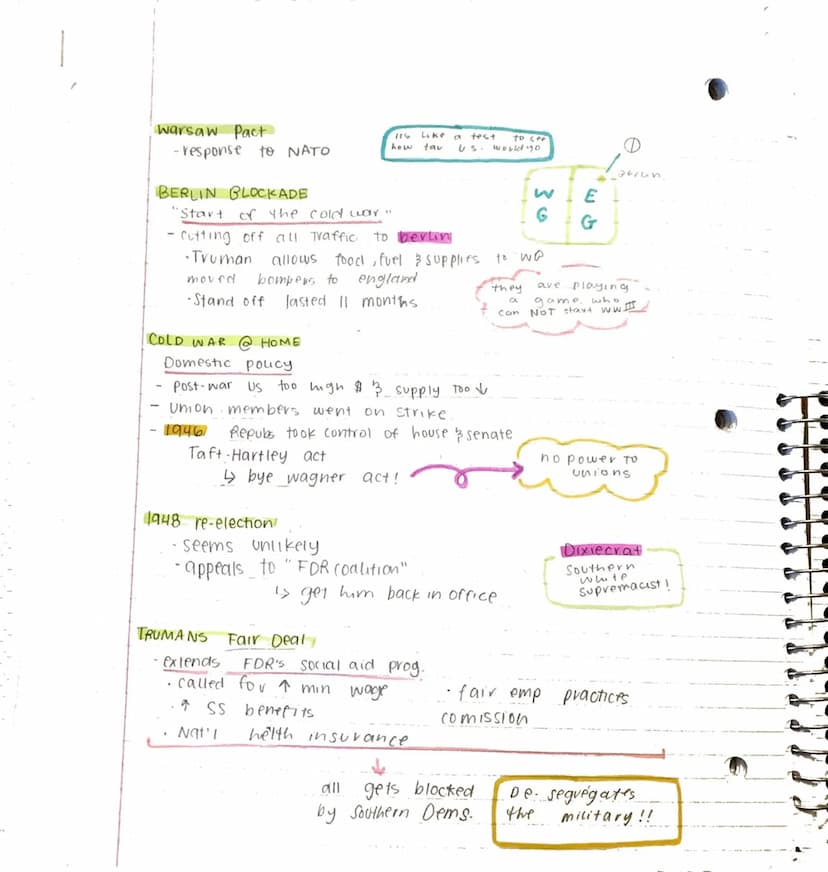 Warsaw Pact
- response to NATO
its like a test to see
how far U.S. would go
①
BERLIN BLOCKADE
W E
G G
"Start of the cold war"
- cutting off all traffic to berlin
· Truman allows food, fuel & supplies to WG
moved bombers to england
· Stand off lasted 11 months
they are playing
a game who
can NOT start WWIII
COLD WAR @ HOME
Domestic policy
- post-war US too high $ & supply too ↓
- Union members went on strike
- 1946 Repubs took control of house & senate
Taft-Hartley act
↳ bye wagner act!
no power to
unions
1948 re-election
· seems unlikely
· appeals to "FDR coalition"
↳ get him back in office
Dixiecrat
southern
white
supremacist!
TRUMANS Fair Deal
· extends FDR's social aid prog.
· called for ↑ min wage
· ↑ SS benefits
· Nat'l helth insurance
· fair emp practices
comission
↓
all gets blocked
by Southern Dems.
De-segregates
the military!!